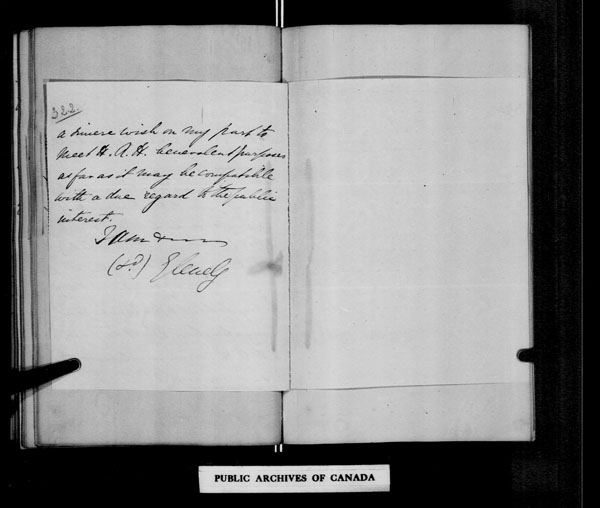 322.
a sincere wish on my part to
meet H. R. H. benevolent purposes
as far as it may be compatible
with a due regard to the public
interest.
I am &
(sd) Glenelg
PUBLIC ARCHIVES OF CANADA